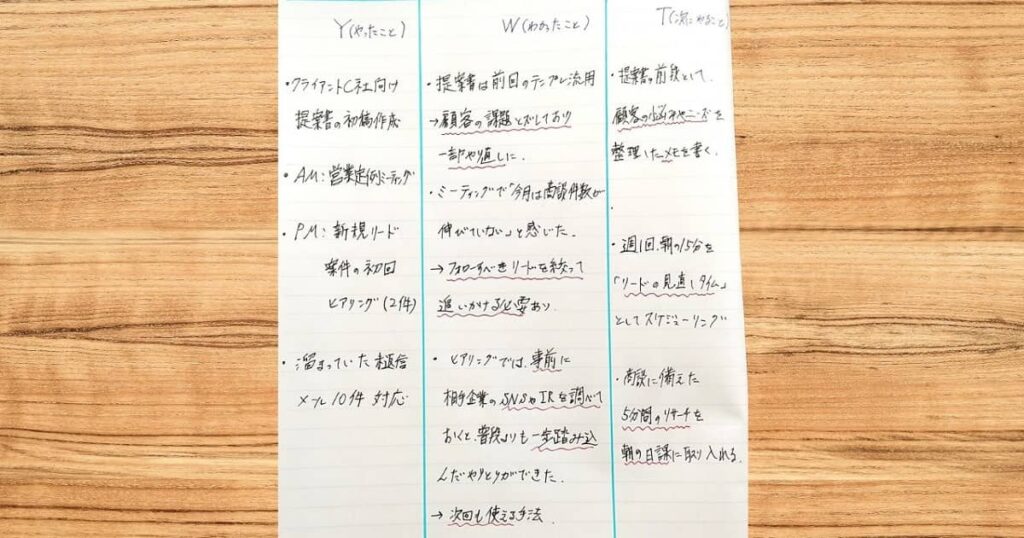 Y(やったこと)
・クライアントC社向け
提案書の初稿作成
・AM:営業定例ミーティング
・PM:新規リード
案件の初回
ヒアリング(2件)
・溜まっていた未返信
メール10件対応
W(わかったこと)
・提案書は前回のテンプレ流用
→顧客の課題とズレており
一部やり直しに.
・ミーティングで「今月は商談件数が
伸びていない」と感じた.
→フォローすべきリードを絞って
追いかける必要あり.
・ヒアリングでは、事前に
相手企業のSNSやIRを調べて
おくと、普段よりも一歩踏み込
んだやりとりができた.
→次回も使える手法.
T(次にやること)
・提案書の前段として.
顧客の悩みやニーズを
整理したメモを書く.
・
・週1回、朝の15分を
「リードの見直しタイム」
としてスケジューリング
・商談に備えた
5分間のリサーチを
朝の日課に取り入れる.